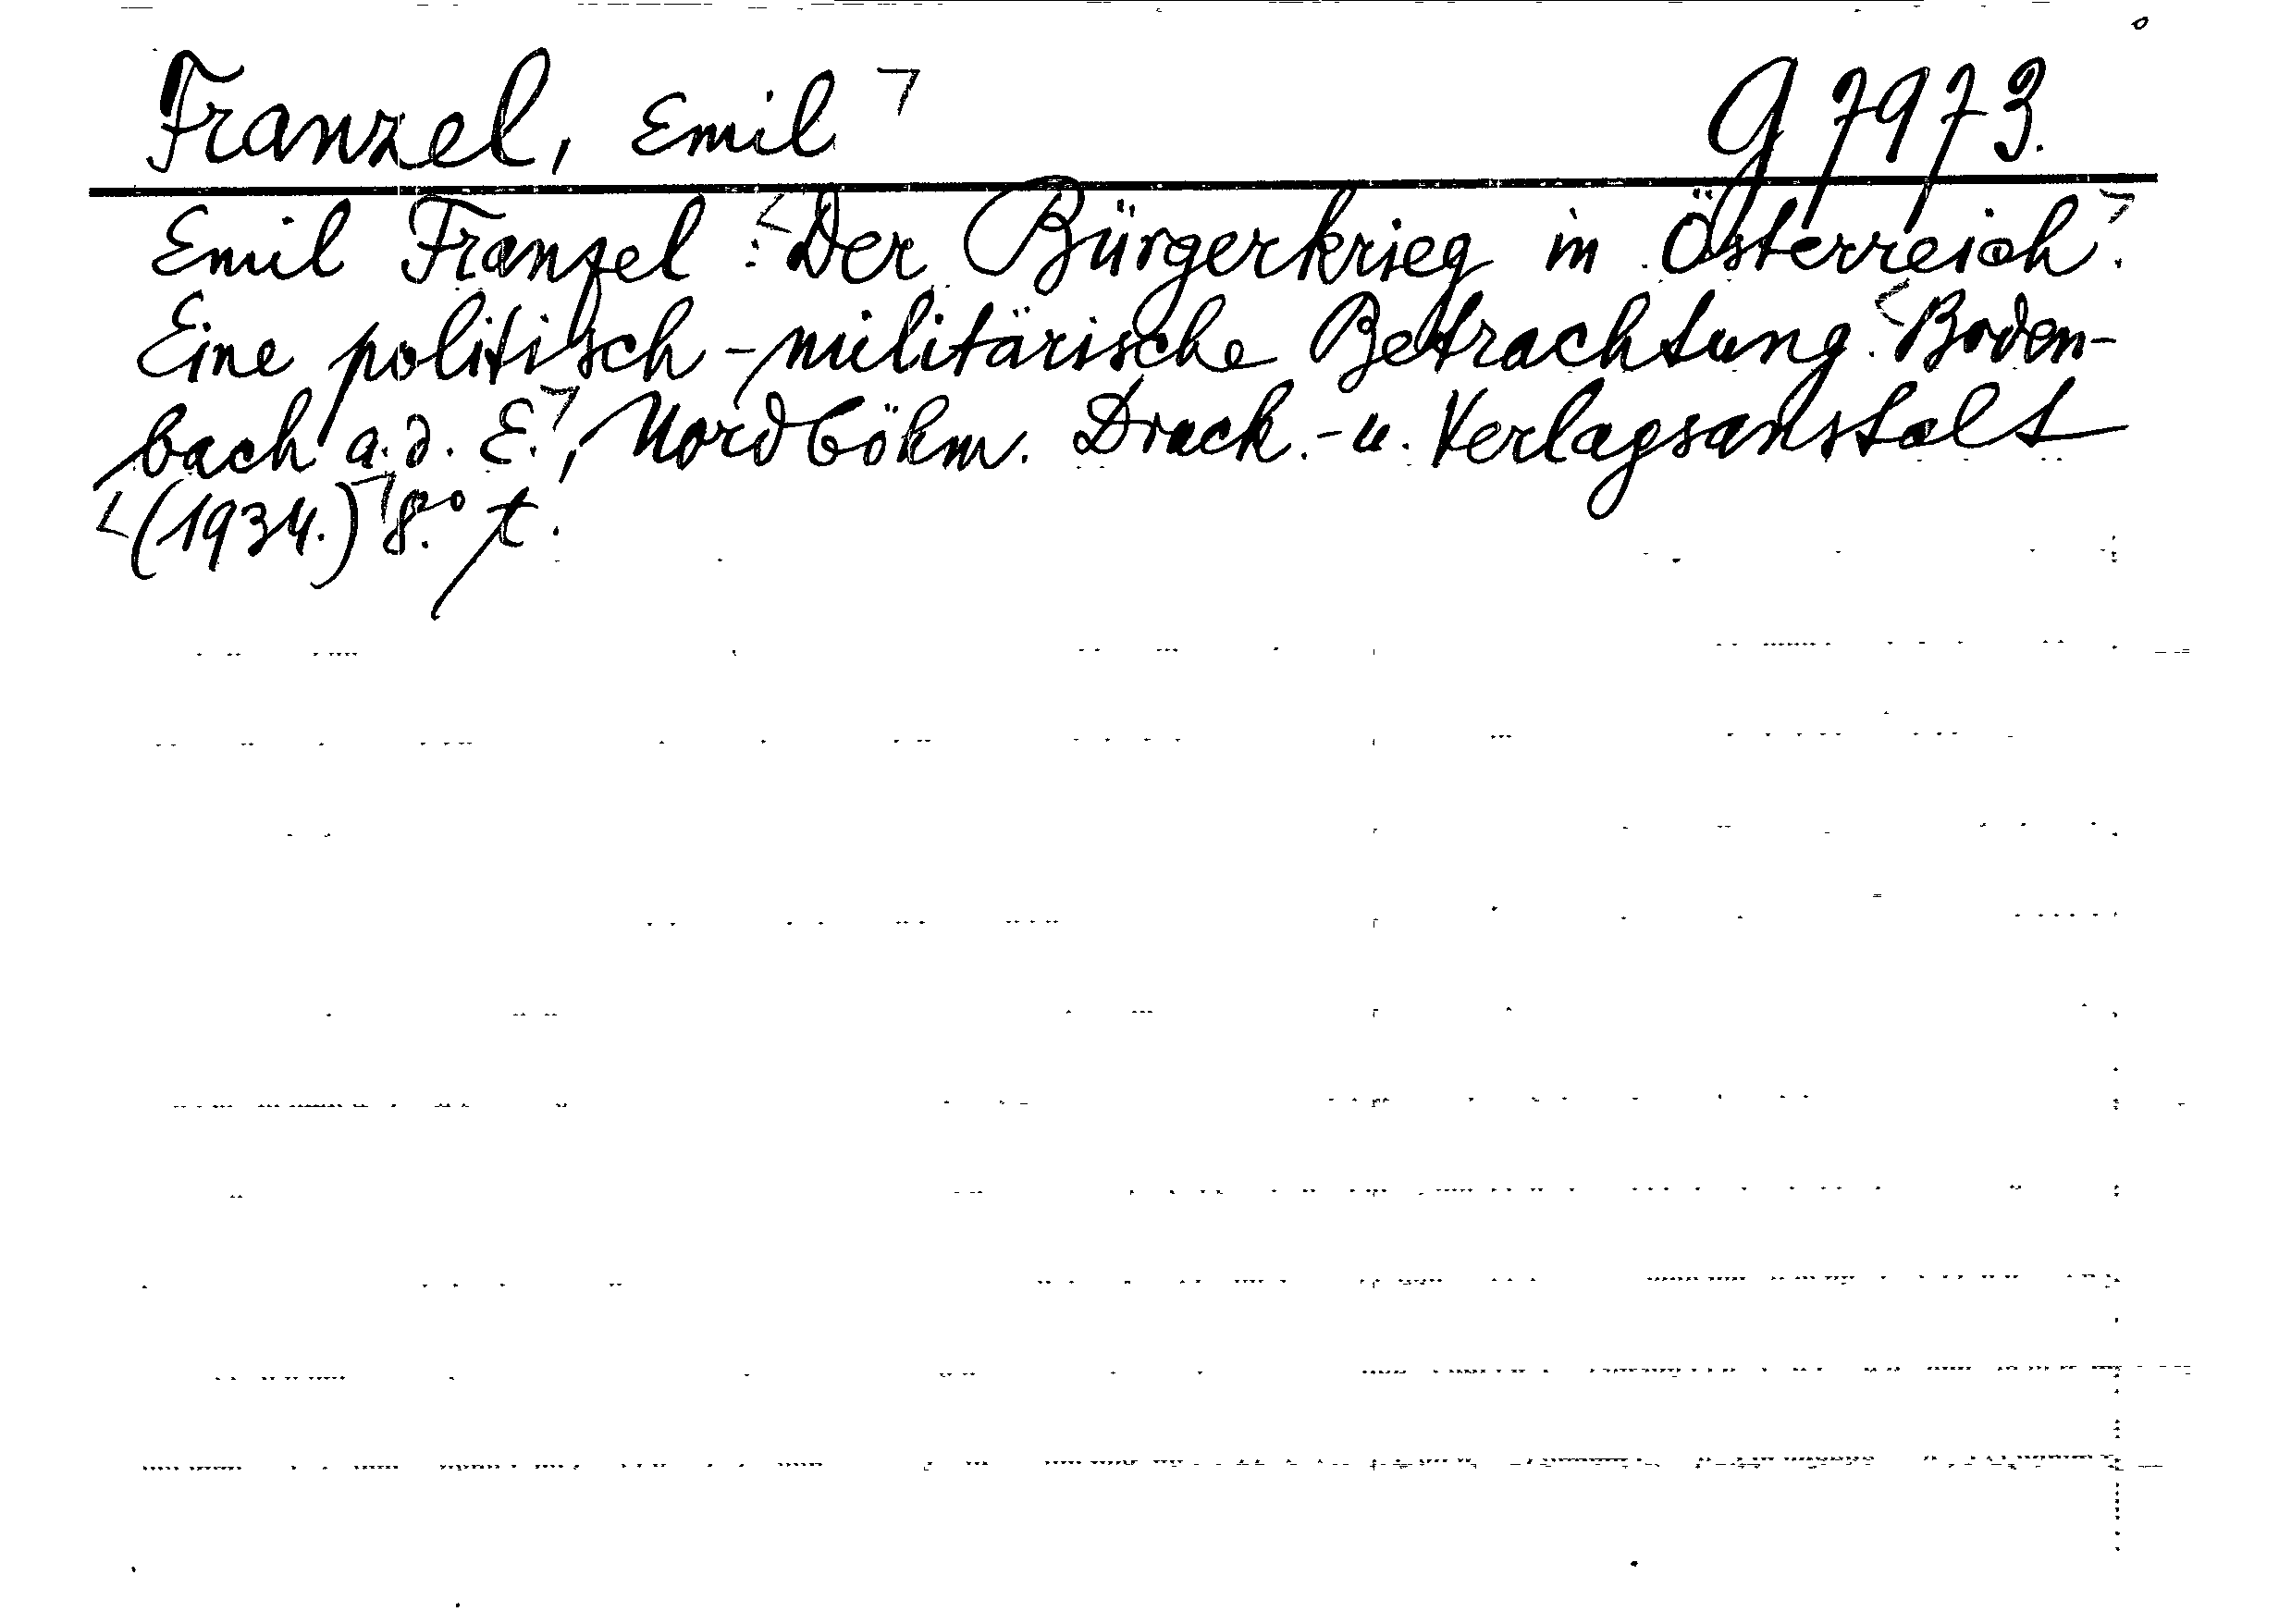 Franzel, Emil G 7973.
Emil Franzel: Der Bürgerkrieg in Österreich.
Eine politisch-militärische Betrachtung. Boden-
bach a. d. E., Nordböhm. Druck.- u. Verlagsanstalt
(1934.) 8.° t.